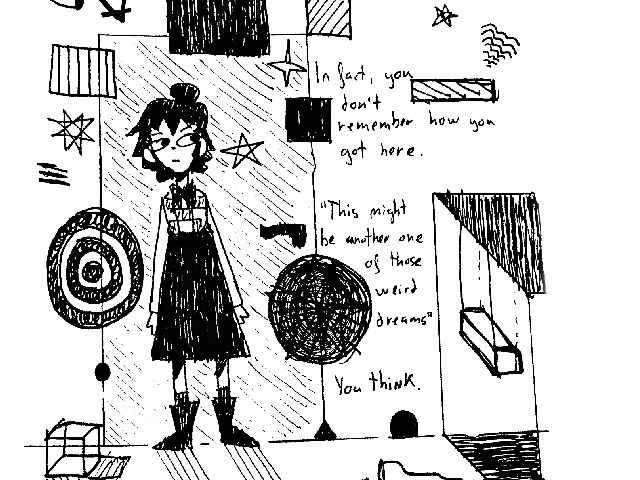 In fact, you
don't
remember how you
got here.
"This might
be another one
of those
weird
dreams"
You think.